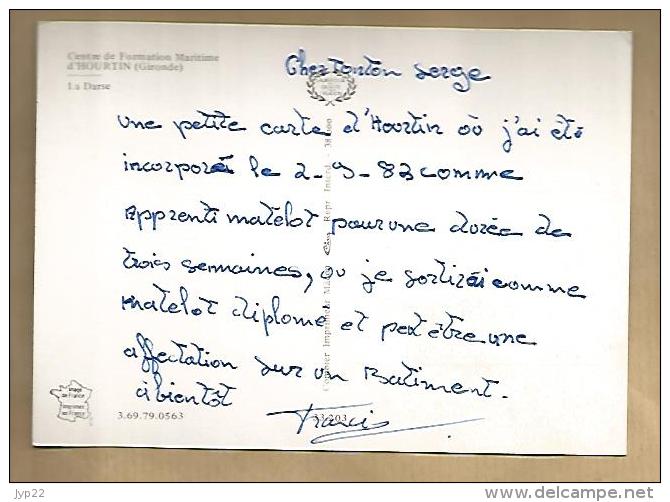 Centre de Formation Maritime
d'HOURTIN (Gironde)
La Darse
Cher Tonton Serge
une petite carte d'Hourtin où j'ai été
incorporé le 2-9-83 comme
Apprenti matelot pour une durée de
trois semaines, ou je sortirai comme
matelot diplome et petêtre une
affectation sur un Batiment.
à bientôt
Francis
Image
de France
Imprimée
en France
3.69.79.0563
33.203
Combier Imprimeur Mâcon Cim Repr. Interd.
jyp22
delcampe.net